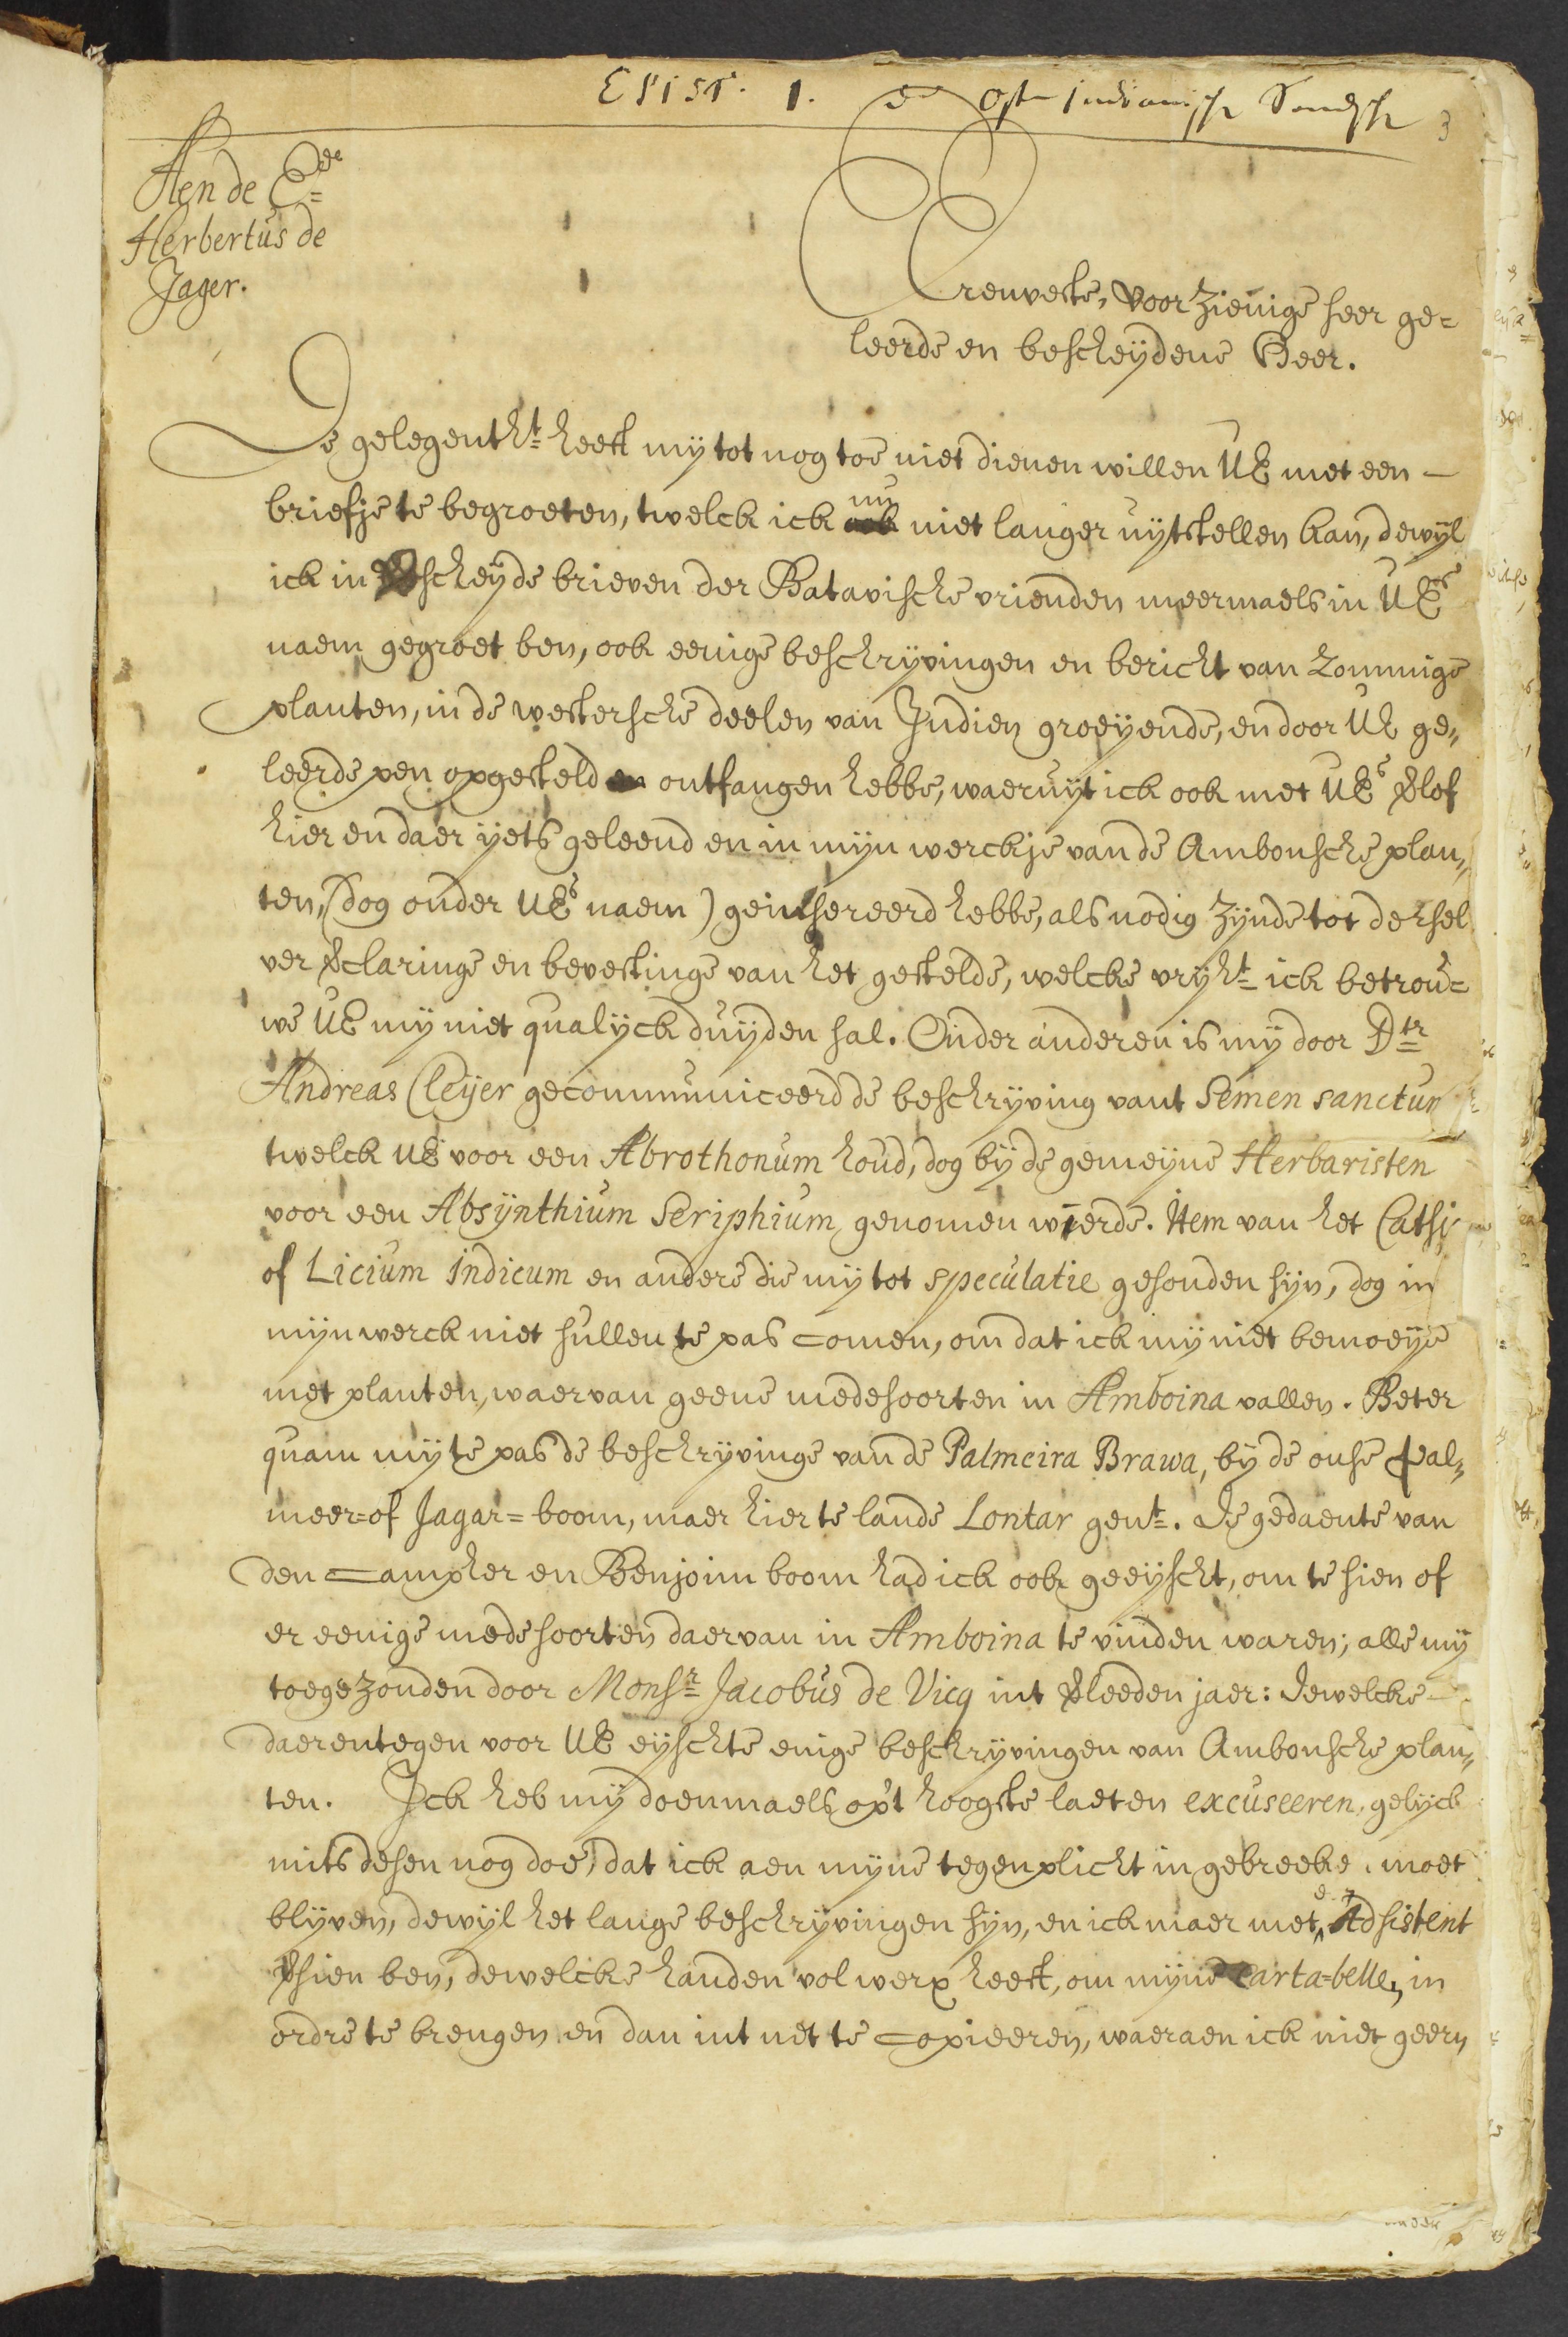 Epist. 1. Ost Indianisch Sendsch 3
Aen de Ede
Herbertus de
Jager.
Erenveste, voorzienige seer ge=
leerde en bescheydene Heer.
De gelegentht heeft my tot nog toe niet dienen willen UE met een
briefje te begroeten, twelck ick nu niet langer uytstellen kan, dewyl
ick in verscheyde brieven der Batavische vrienden meermaels in UEs
naem gegroet ben, ook eenige beschryvingen en bericht van zommige
planten, in de westersche deelen van Indien groeyende, en door UE ge„
leerde pen opgesteld ontfangen hebbe, waeruyt ick ook met UEs verlof
hier en daer yets geleend en in myn werckje van de Ambonsche plan„
ten, (dog onder UEs naem) geinsereerd hebbe, als nodig zynde tot dersel
ver verclaringe en bevestinge van het gestelde, welcke vryht ick betrou=
we UE my niet qualyck duyden sal. Onder anderen is my door Dtr
Andreas Cleyer gecommuniceerd de beschryving vant Semen sanctum
twelck UE voor een Abrothonum houd, dog by de gemeyne Herbaristen
voor een Absynthium Seriphium genomen wierde. Item van het Catsj
of Licium Indicum en andere die my tot speculatie gesonden syn, dog in
myn werck niet sullen te pas comen, om dat ick my niet bemoeye
met planten, waervan geene medesoorten in Amboina vallen. Beter
quam my te pas de beschryvinge van de Palmeira Brawa, by de onse Pal„
meer= of Jagar=boom, maer hier te lande Lontar gent. De gedaente van
den Campher en Benjoim boom had ick ook geeyscht, om te sien of
er eenige medesoorten daervan in Amboina te vinden waren; alle my
toegezonden door Monsr Jacobus de Vicq int verleeden jaer: Dewelcke
daerentegen voor UE eyschte enige beschryvingen van Ambonsche plan„
ten. Ick heb my doenmaels op't hoogste laeten excuseeren, gelyck
mits desen nog doe, dat ick aen myne tegenplicht in gebreeke moet
blyven, dewyl het lange beschryvingen syn, en ick maer met e. Adsistent
versien ben, dewelcke handen vol werx heeft, om myne carta=belle, in
ordre te brengen en dan int net te copieeren, waeraen ick niet geern